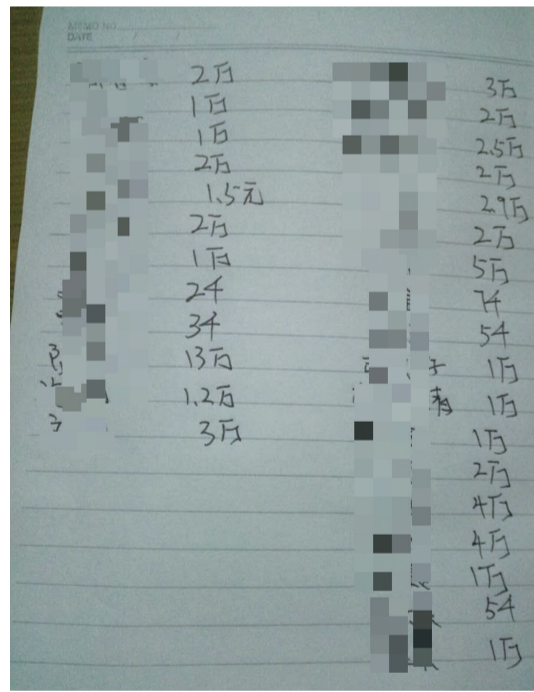 MEMO NO.
DATE / /
2万
1万
1万
2万
1.5元
2万
1万
24
34
13万
1.2万
3万
3万
2万
2.5万
2万
2.9万
2万
5万
74
54
1万
1万
1万
2万
4万
4万
1万
54
1万